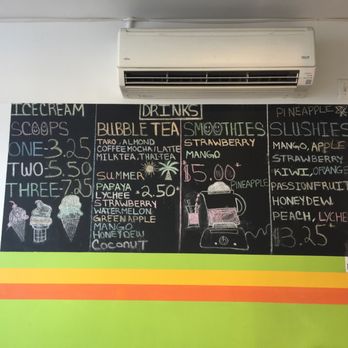 ICECREAM
SCOOPS
ONE-3.25
TWO-5.50
THREE-7.25
DRINKS
BUBBLE TEA
TARO, ALMOND
COFFEE MOCHA/LATTE
MILKTEA, THAI-TEA
SUMMER
2.50
PAPAYA
LYCHEE
STRAWBERRY
WATERMELON
GREEN APPLE
MANGO
HONEYDEW
COCONUT
SMOOTHIES
STRAWBERRY
MANGO
$5.00
PINEAPPLE
PINEAPPLE
SLUSHIES
MANGO, APPLE
STRAWBERRY
KIWI, ORANGE
PASSIONFRUIT
HONEYDEW
PEACH, LYCHE
$3.25